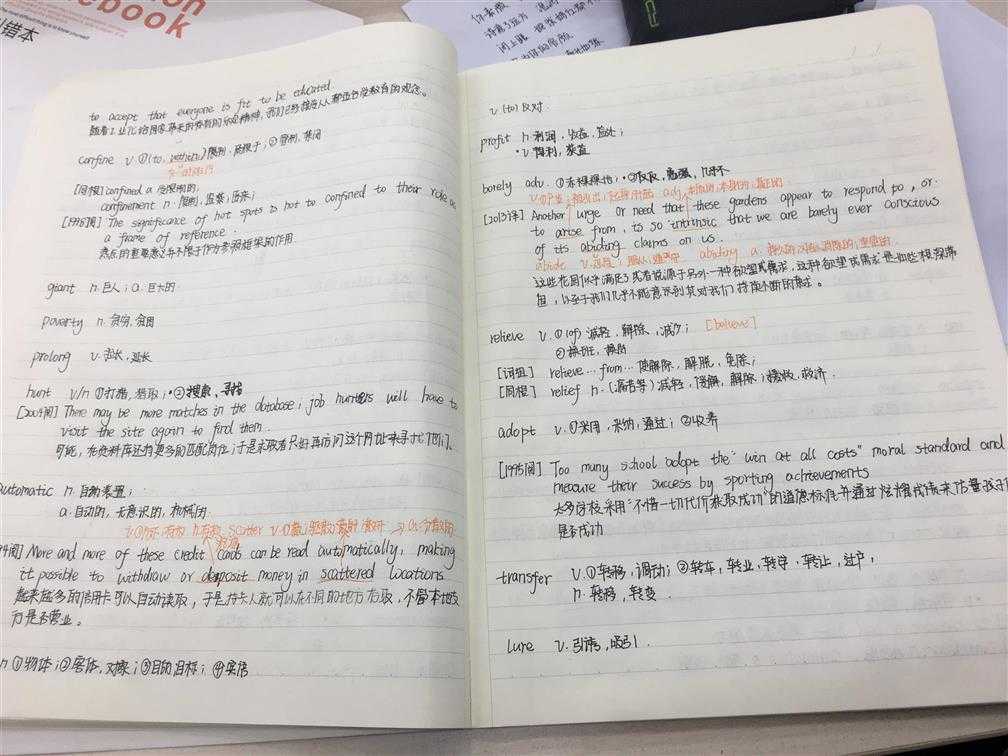 ebook
错本
to accept that everyone is fit to be educated.
confine v. ①(to, within)限制,局限于;②管制,禁闭
[同根] confined a 受限制的;
confinement n.限制,监禁;
[1996阅] The significance of hot spots is not to confined to their role as
a frame of reference.
热点的重要意义并不限于作为参照框架的作用
giant n.巨人;a.巨大的
poverty n.贫穷,贫困
prolong v.拉长,延长
hunt v/n ①打猎,猎取;②搜索,寻找
[2004阅] There may be more matches in the database; job hunters will have to
visit the site again to find them.
可能,在资料库还有更多的匹配岗位;于是求职者只好再访问这个网址来寻找它们。
automatic n.自动装置;
a.自动的,无意识的,机械的
scatter
More and more of these credit cards can be read automatically, making
it possible to withdraw or deposit money in scattered locations
越来越多的信用卡可以自动读取,于是持卡人就可以在不同的地方存取,不管本地支
行是否营业。
n ①物体;②客体,对象;③目的目标;④实体
v (to) 反对.
profit n.利润,收益,益处;
v 得利,获益
barely adv. ①赤裸裸地;②仅仅,勉强,几乎不
[2013译] Another urge or need that these gardens appear to respond to, or
to arise from, is so intrinsic that we are barely ever conscious
of its abiding claims on us.
abide v. abiding a
这些花园似乎满足了或者说源于另外一种欲望或需求,这种欲望或需求是如此根深蒂
固,以至于我们几乎不能意识到其对我们持续不断的要求。
relieve v.①(of)减轻,解除,减少; [believe]
②换班,换岗
[词组] relieve…from…使解除,解脱,免除;
[同根] relief n.(痛苦等)减轻,缓解,解除;援救,救济.
adopt v.①采用,采纳,通过;②收养
[1995阅] Too many school adopt the "win at all costs" moral standard and
measure their success by sporting achievements
太多学校采用"不惜一切代价获取成功"的道德标准并通过体育成绩来估量孩子们
是否成功
transfer v.①转移,调动;②转车,转业,转学,转让,过户;
n.转移,转变.
lure v.引诱,吸引.